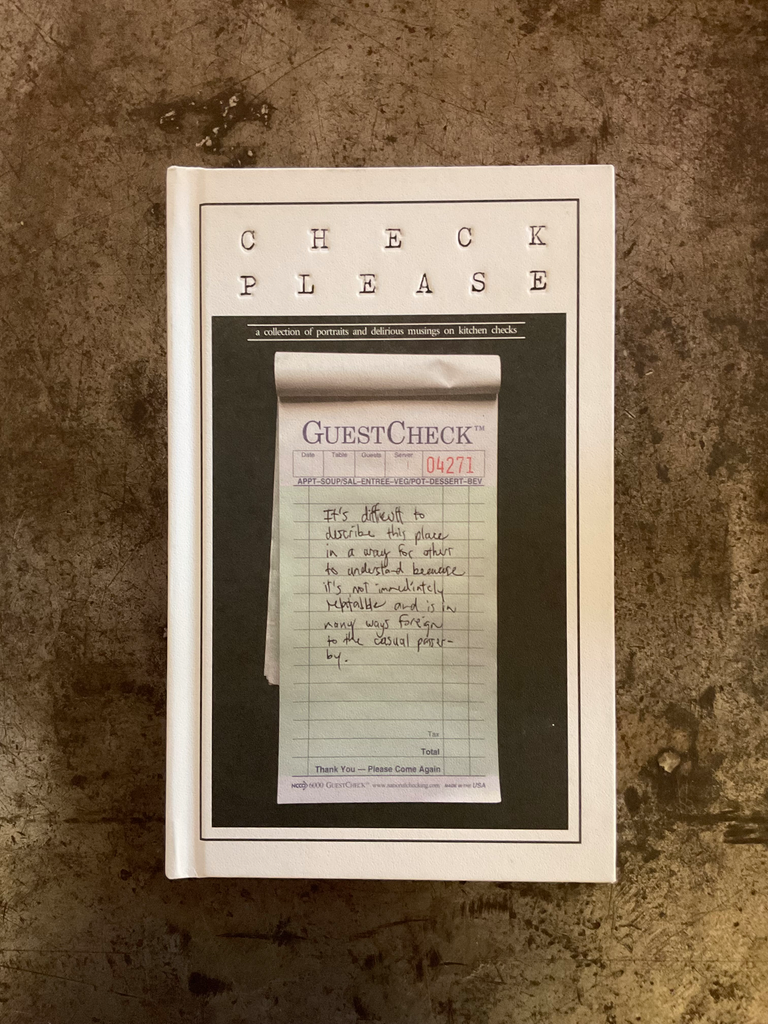 CHECK
PLEASE
a collection of portraits and delirious musings on kitchen checks
GUESTCHECK™
Date Table Guests Server 04271
APPT-SOUP/SAL-ENTREE-VEG/POT-DESSERT-BEV
It's difficult to
describe this place
in a way for others
to understand because
it's not immediately
relatable and is in
many ways foreign
to the casual passer-
by.
Tax
Total
Thank You — Please Come Again
NCCO 6000 GUESTCHECK™ www.nationalchecking.com MADE IN THE USA